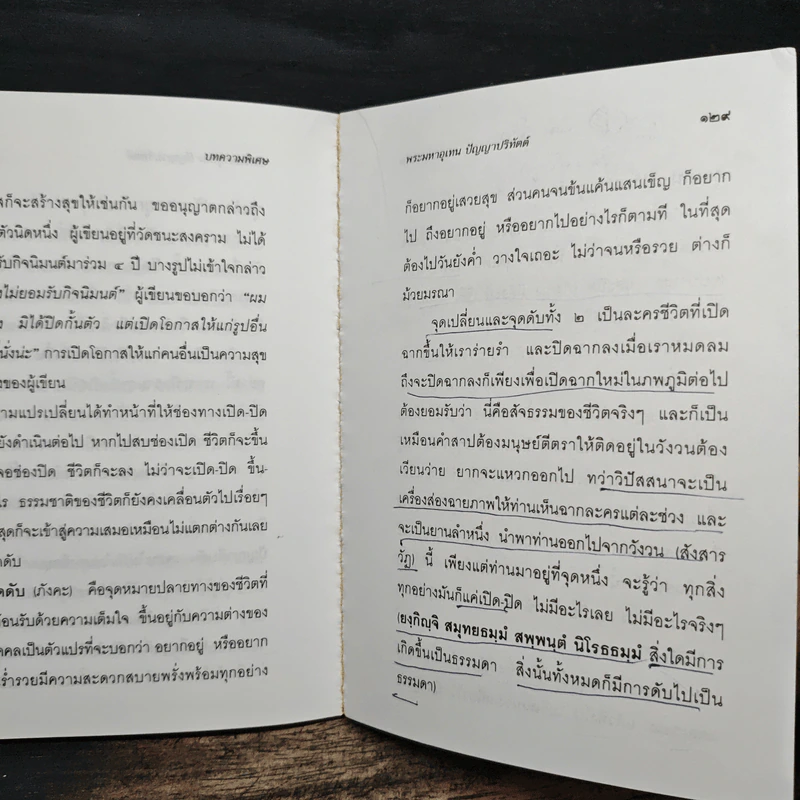 บทความพิเศษ
ก็จะสร้างสุขให้เช่นกัน ขออนุญาตกล่าวถึง
ตัวนิดหนึ่ง ผู้เขียนอยู่ที่วัดชนะสงคราม ไม่ได้
รับกิจนิมนต์มาร่วม ๔ ปี บางรูปไม่เข้าใจกล่าว
ไม่ยอมรับกิจนิมนต์” ผู้เขียนขอบอกว่า “ผม
มิได้ปิดกั้นตัว แต่เปิดโอกาสให้แก่รูปอื่น
นั่งน่ะ” การเปิดโอกาสให้แก่คนอื่นเป็นความสุข
ของผู้เขียน
ามแปรเปลี่ยนได้ทำหน้าที่ให้ช่องทางเปิด-ปิด
ยังดำเนินต่อไป หากไปสบช่องเปิด ชีวิตก็จะขึ้น
จอช่องปิด ชีวิตก็จะลง ไม่ว่าจะเปิด-ปิด ขึ้น-
ร ธรรมชาติของชีวิตก็ยังคงเคลื่อนตัวไปเรื่อยๆ
สุดก็จะเข้าสู่ความเสมอเหมือนไม่แตกต่างกันเลย
ดับ
ดดับ (ภังคะ) คือจุดหมายปลายทางของชีวิตที่
้อนรับด้วยความเต็มใจ ขึ้นอยู่กับความต่างของ
คคลเป็นตัวแปรที่จะบอกว่า อยากอยู่ หรืออยาก
ร่ำรวยมีความสะดวกสบายพรั่งพร้อมทุกอย่าง
พระมหาอุเทน ปัญญาปริทัตต์
๑๒๙
ก็อยากอยู่เสวยสุข ส่วนคนจนข้นแค้นแสนเข็ญ ก็อยาก
ไป ถึงอยากอยู่ หรืออยากไปอย่างไรก็ตามที ในที่สุด
ต้องไปวันยังค่ำ วางใจเถอะ ไม่ว่าจนหรือรวย ต่างก็
ม้วยมรณา
จุดเปลี่ยนและจุดดับทั้ง ๒ เป็นละครชีวิตที่เปิด
ฉากขึ้นให้เราร่ายรำ และปิดฉากลงเมื่อเราหมดลม
ถึงจะปิดฉากลงก็เพียงเพื่อเปิดฉากใหม่ในภพภูมิต่อไป
ต้องยอมรับว่า นี่คือสัจธรรมของชีวิตจริงๆ และก็เป็น
เหมือนคำสาปต้องมนุษย์ตีตราให้ติดอยู่ในวังวนต้อง
เวียนว่าย ยากจะแหวกออกไป ทว่าวิปัสสนาจะเป็น
เครื่องส่องฉายภาพให้ท่านเห็นฉากละครแต่ละช่วง และ
จะเป็นยานลำหนึ่ง นำพาท่านออกไปจากวังวน (สังสาร
วัฏ) นี้ เพียงแต่ท่านมาอยู่ที่จุดหนึ่ง จะรู้ว่า ทุกสิ่ง
ทุกอย่างมันก็แค่เปิด-ปิด ไม่มีอะไรเลย ไม่มีอะไรจริงๆ
(ยงฺกิญฺจิ สมุทยธมฺมํ สพฺพนฺตํ นิโรธธมฺมํ สิ่งใดมีการ
เกิดขึ้นเป็นธรรมดา สิ่งนั้นทั้งหมดก็มีการดับไปเป็น
ธรรมดา)